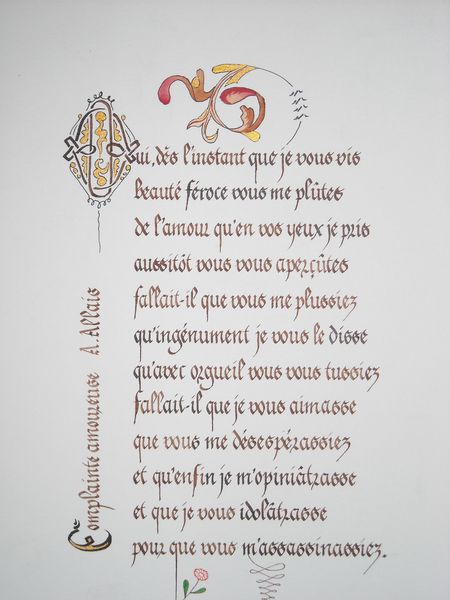 Oui, dès l'instant que je vous vis
beauté féroce vous me plûtes
de l'amour qu'en vos yeux je pris
aussitôt vous vous aperçûtes
fallait-il que vous me plussiez
qu'ingénument je vous le disse
qu'avec orgueil vous vous tussiez
fallait-il que je vous aimasse
que vous me désespérassiez
et qu'enfin je m'opiniâtrasse
et que je vous idolâtrasse
pour que vous m'assassinassiez.
Complainte amoureuse A. Allais